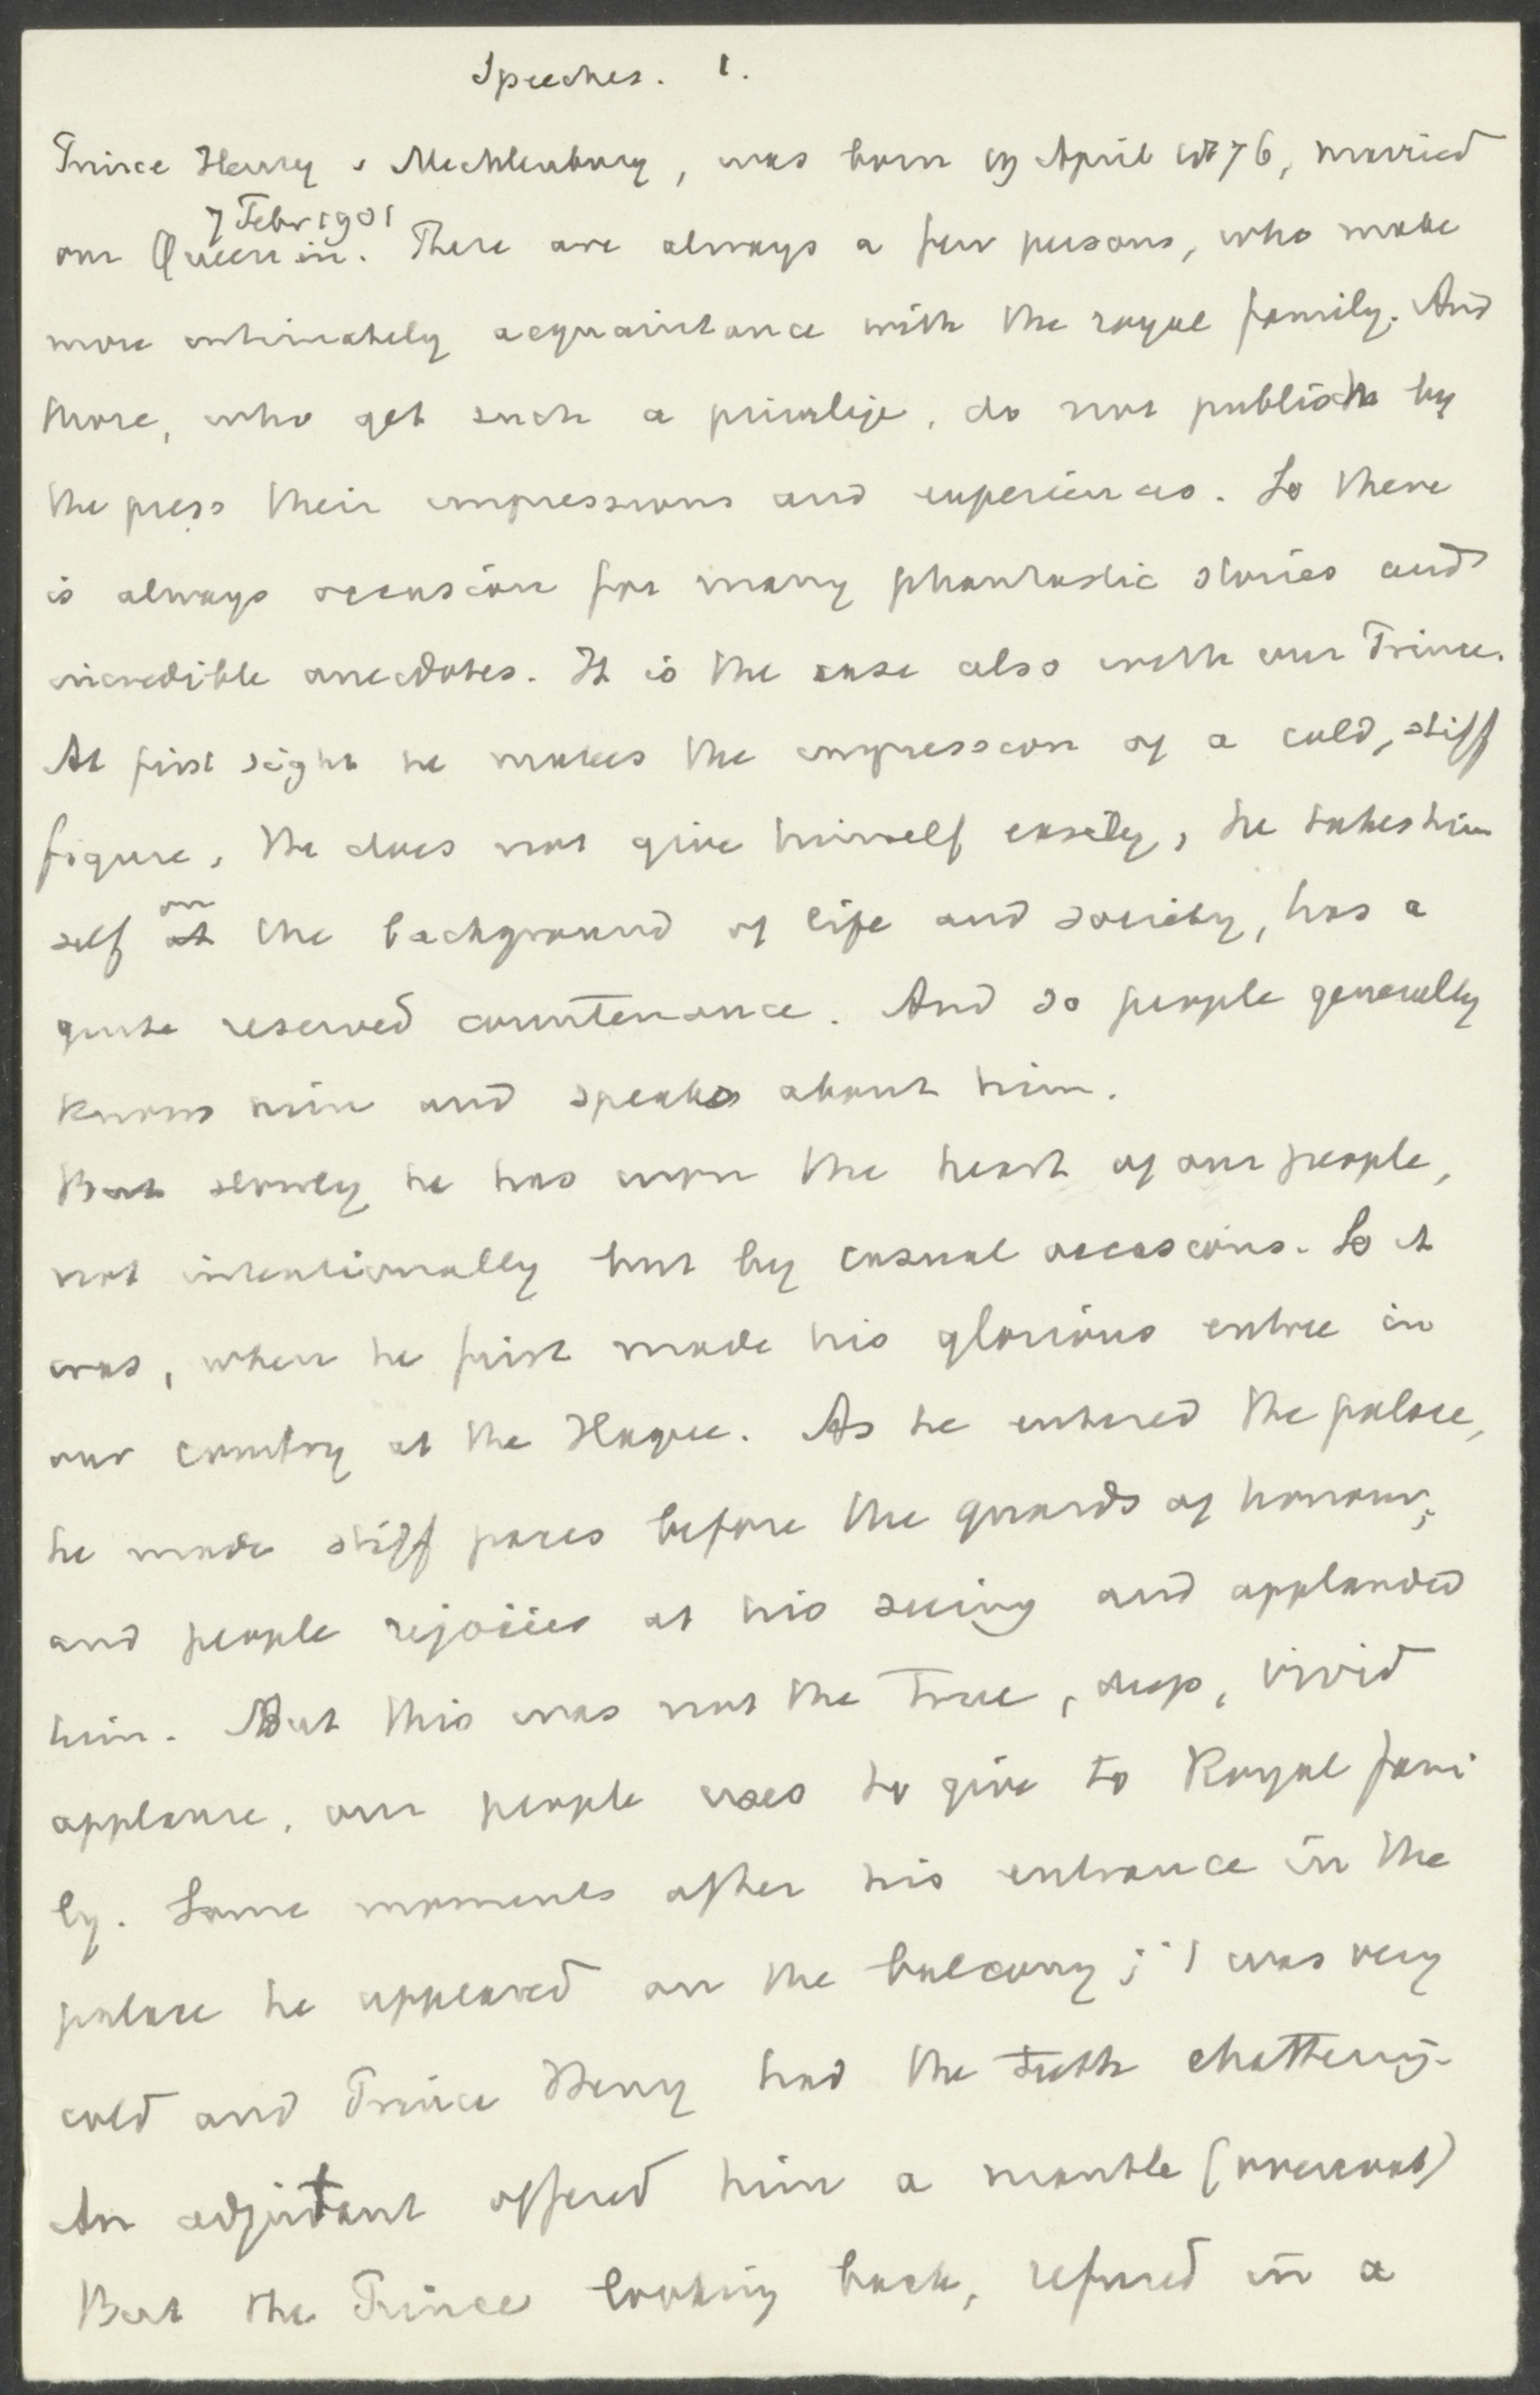 Speeches. 1.
Prince Henry v Mecklenburg, was born 19 April 1876, married
7 Febr 1901
our Queen in. There are always a few persons, who make
more intimately acquaintance with the royal family. And
those, who get such a privilije, do not publish by
the press their impressions and experiences. So there
is always occasion for many phantastic stories and
incredible anecdotes. It is the case also with our Prince.
At first sight he makes the impression of a cold, stiff
figure, he does not give himself easily, he takes him
on
self at the background of life and society, has a
quite reserved countenance. And so people generally
knows him and speaks about him.
But slowly he has won the heart of our people,
not intentionally but by casual occasions. So it
was, when he first made his glorious entree in
our country at the Hague. As he entered the palace,
he made stiff paces before the guards of honour;
and people rejoices at his seeing and applauded
him. But this was not the true, deep, vivid
applause, our people uses to give to Royal fami
ly. Some moments after his entrance in the
palace he appeared on the balcony; 't was very
cold and Prince Henry had the teeth chattering.
An adjutant offered him a mantle (overcoat)
But the Prince looking back, refused in a